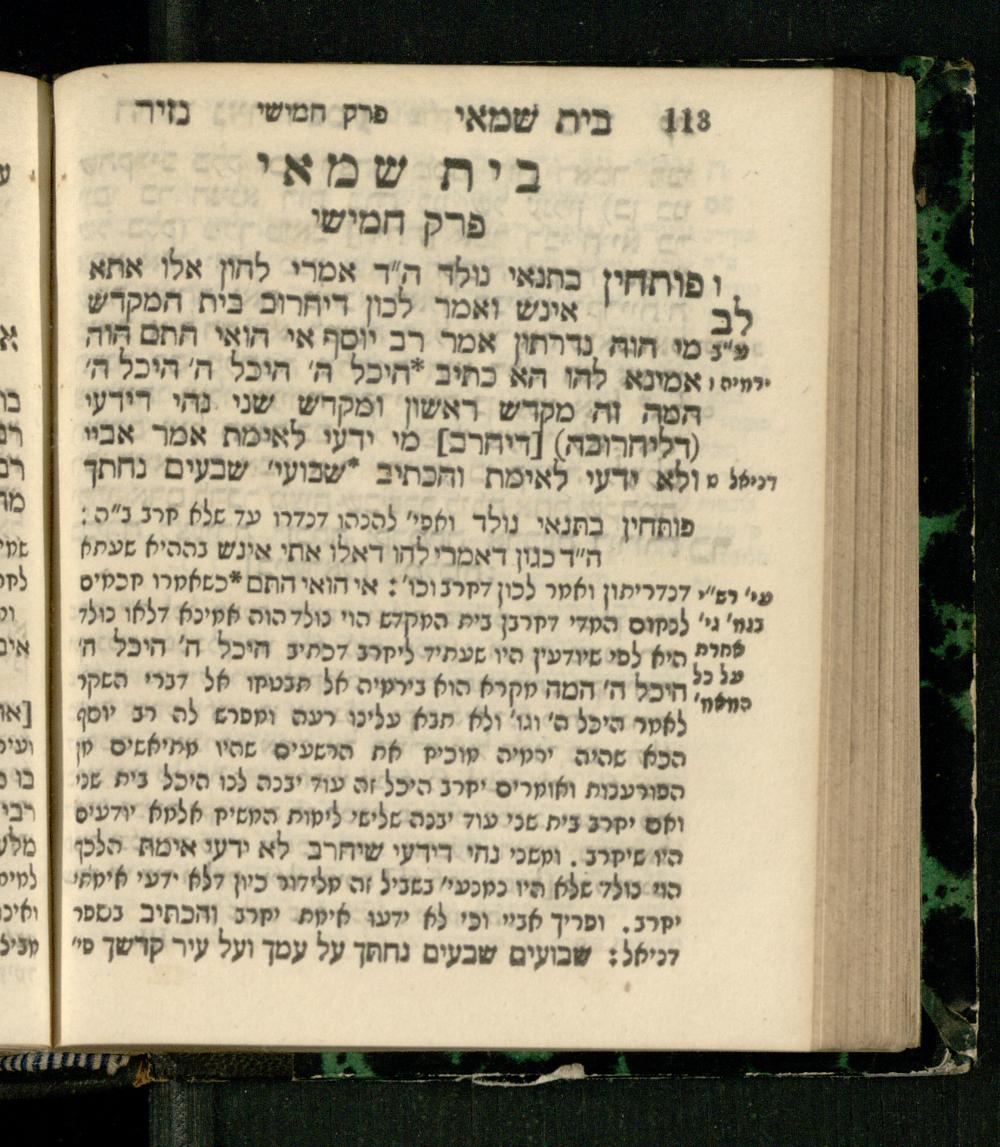 113 בית שמאי פרק חמישי נזיר
בית שמאי
פרק חמישי
ו פותחין בתנאי נולד ה"ד אמרי להון אלו אתא
לב
אינש ואמר לכון דיחרוב בית המקדש
ע"ב מי הוה נדרתון אמר רב יוסף אי הואי התם הוה
ירמיה ז אמינא להו הא כתיב *היכל ה' היכל ה' היכל ה'
המה זה מקדש ראשון ומקדש שני נהי דידעי
(דליחרובה) [דיחרב] מי ידעי לאימת אמר אביי
דניאל ט ולא ידעי לאימת והכתיב *שבועי' שבעים נחתך
פותחין בתנאי נולד ואפי' להנהו דנדרו עד שלא חרב ב"ה :
ה"ד כגון דאמרי להו דאלו אתי אינש בההיא שעתא
עי' רש"י דנדריתון ואמר לכון דחרב וכו' : אי הואי התם *כשאמרו חכמים
בגמ' גי' לנחום המדי דחרבן בית המקדש הוי נולד הוה אמינא דלאו נולד
אחרת היא לפי שיודעין היו שעתיד ליחרב דכתיב היכל ה' היכל ה'
על כל היכל ה' המה מקרא הוא בירמיה אל תבטחו אל דברי השקר
המאמ' לאמר היכל ה' וגו' ולא תבא עלינו רעה ומפרש לה רב יוסף
הכא שהיה ירמיה מוכיח את הרשעים שהיו מתיאשים מן
הפורענות ואומרים יחרב היכל זה עוד יבנה לנו היכל בית שני
ואם יחרב בית שני עוד יבנה שלישי לימות המשיח אלמא יודעים
היו שיחרב . ומשני נהי דידעי שיחרב לא ידעי אימת הלכך
הוי נולד שלא היו נמנעי' בשביל זה מלידור כיון דלא ידעי אימתי
יחרב. ופריך אביי וכי לא ידעו אימת יחרב והכתיב בספר
דניאל : שבועים שבעים נחתך על עמך ועל עיר קדשך פי'